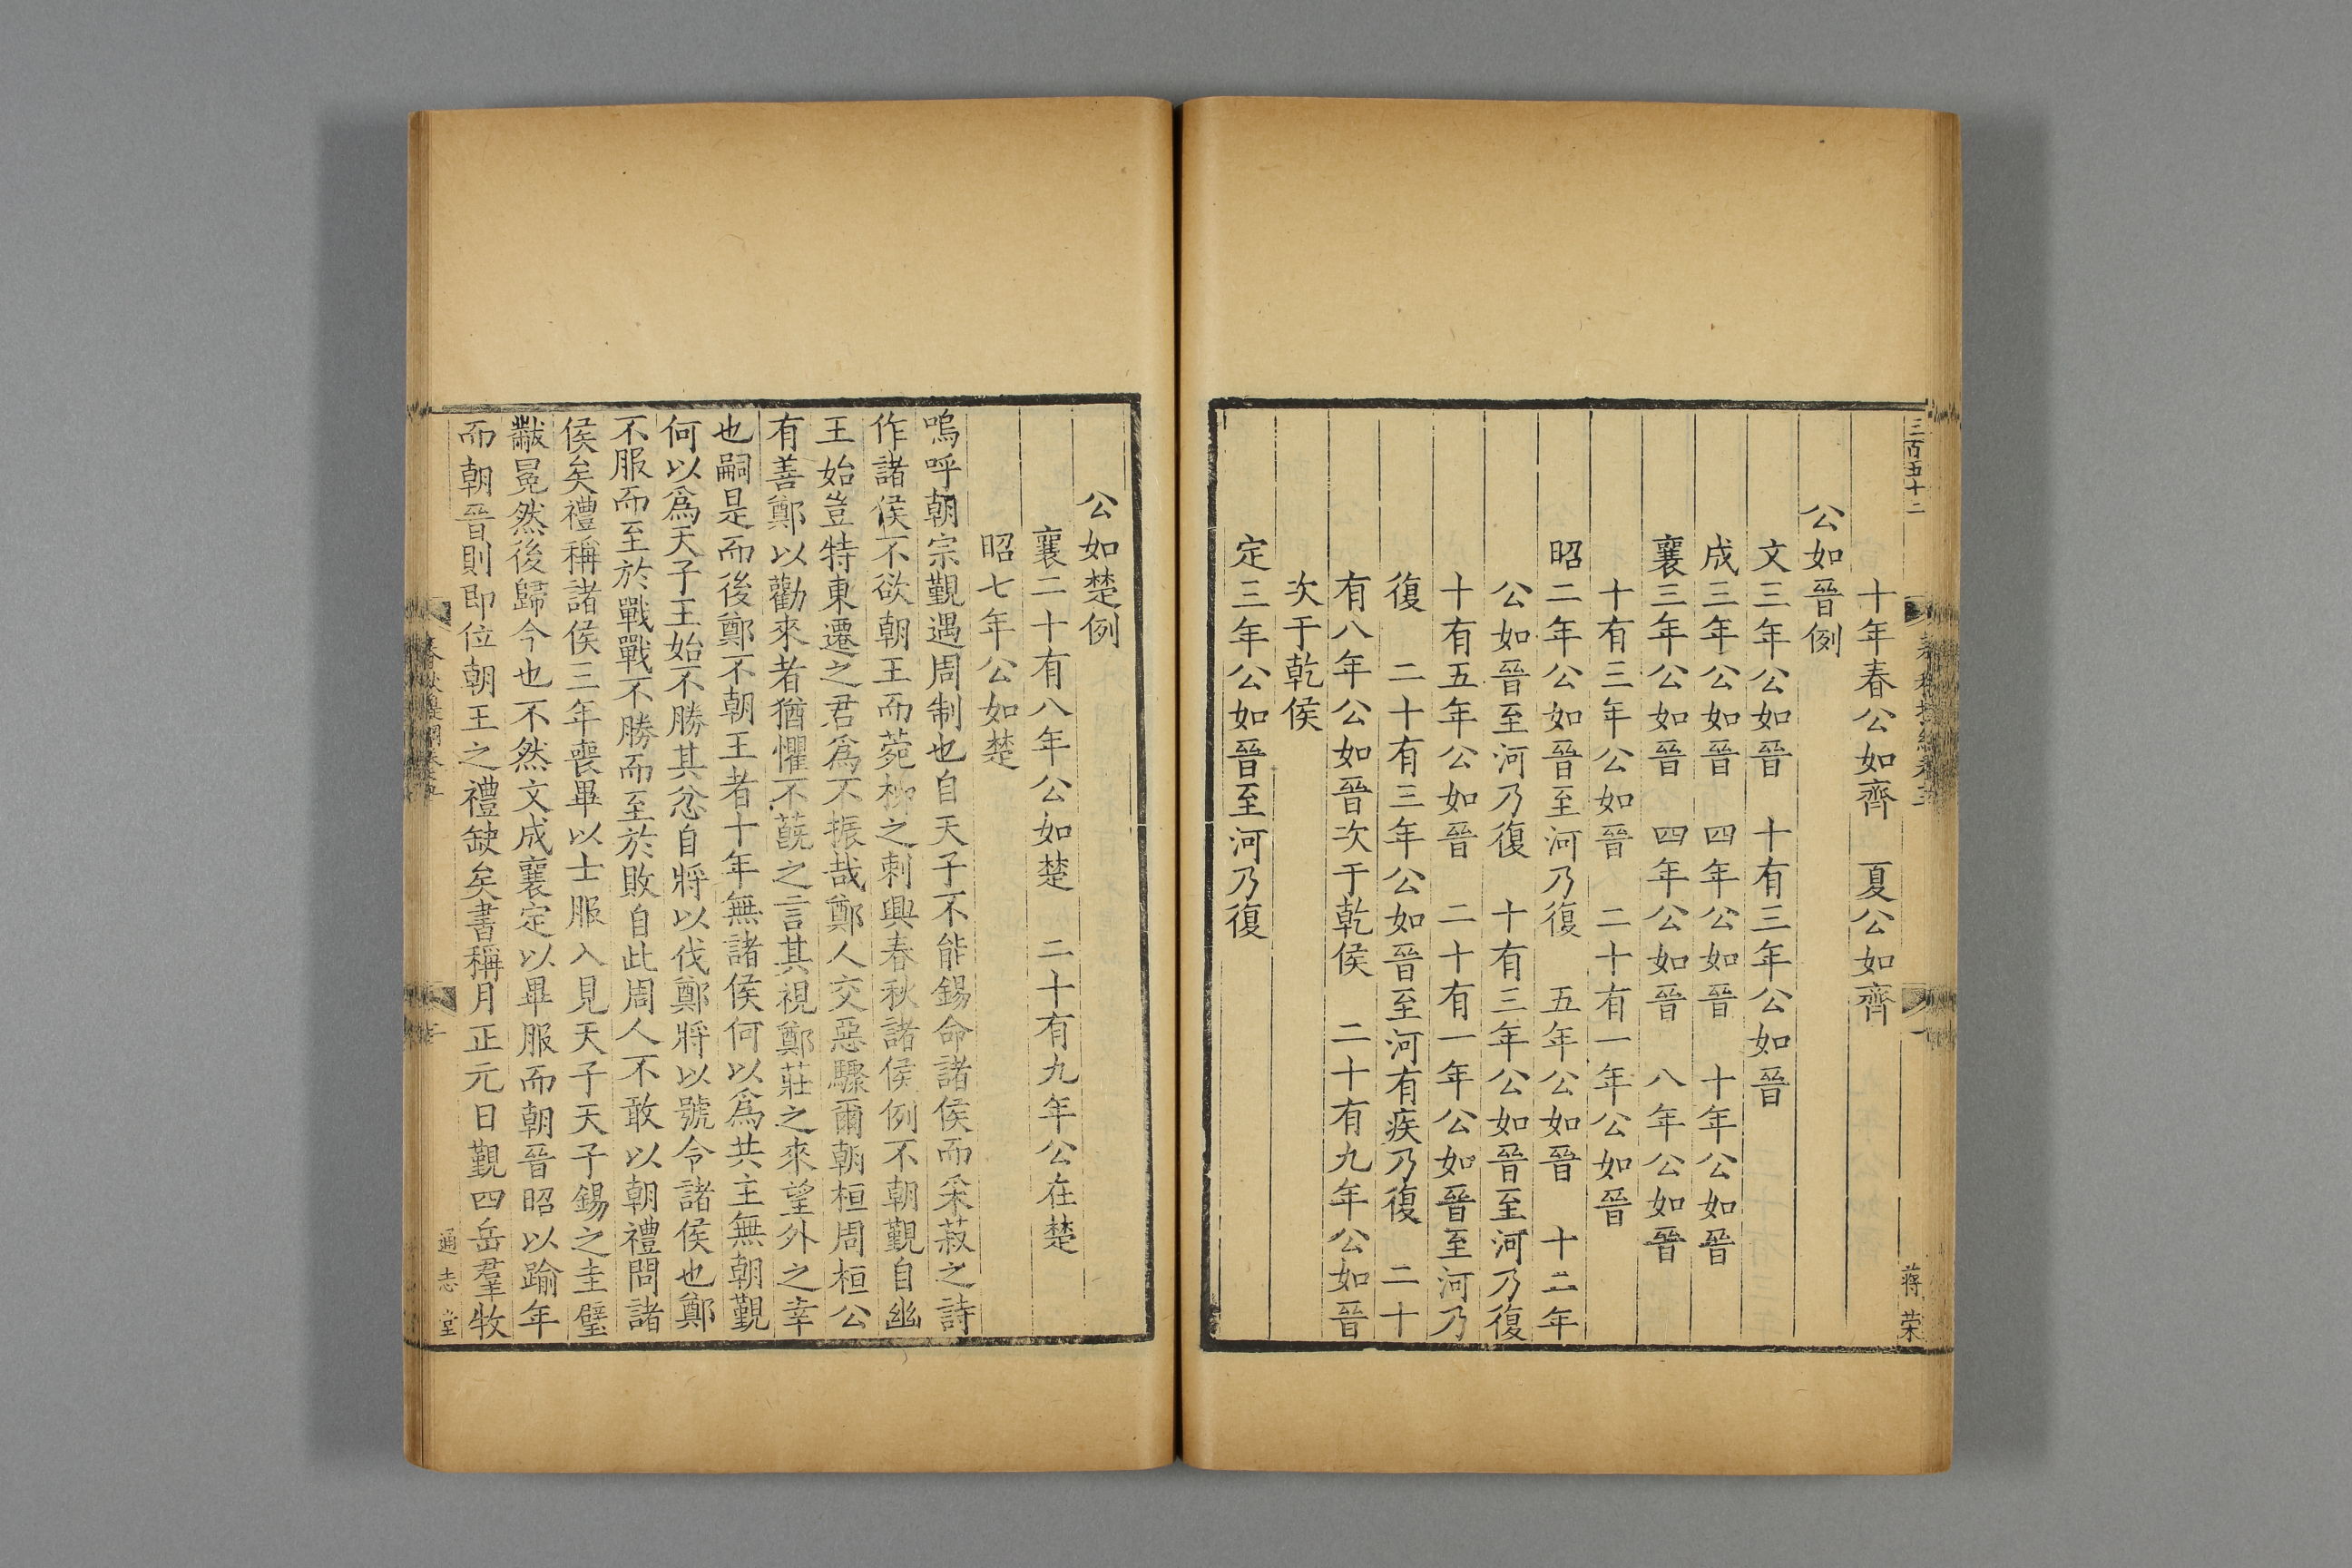 三百五十二
蔣榮
十年春公如齊　夏公如齊
公如晉例
文三年公如晉　十有三年公如晉
成三年公如晉　四年公如晉　十年公如晉
襄三年公如晉　四年公如晉　八年公如晉
十有三年公如晉　二十有一年公如晉
昭二年公如晉至河乃復　五年公如晉　十二年
公如晉至河乃復　十有三年公如晉至河乃復
十有五年公如晉　二十有一年公如晉至河乃
復　二十有三年公如晉至河有疾乃復　二十
有八年公如晉次于乾侯　二十有九年公如晉
次于乾侯
定三年公如晉至河乃復
公如楚例
襄二十有八年公如楚　二十有九年公在楚
昭七年公如楚
嗚呼朝宗覲遇周制也自天子不能錫命諸侯而采菽之詩
作諸侯不欲朝王而菀柳之刺興春秋諸侯例不朝覲自幽
王始豈特東遷之君爲不振哉鄭人交惡驟爾朝桓周桓公
有善鄭以勸來者猶懼不蔇之言其視鄭莊之來望外之幸
也嗣是而後鄭不朝王者十年無諸侯何以爲共主無朝覲
何以爲天子王始不勝其忿自將以伐鄭將以號令諸侯也鄭
不服而至於戰戰不勝而至於敗自此周人不敢以朝禮問諸
侯矣禮稱諸侯三年喪畢以士服入見天子天子錫之圭璧
黻冕然後歸今也不然文成襄定以畢服而朝晉昭以踰年
而朝晉則即位朝王之禮缺矣書稱月正元日覲四岳羣牧
通志堂